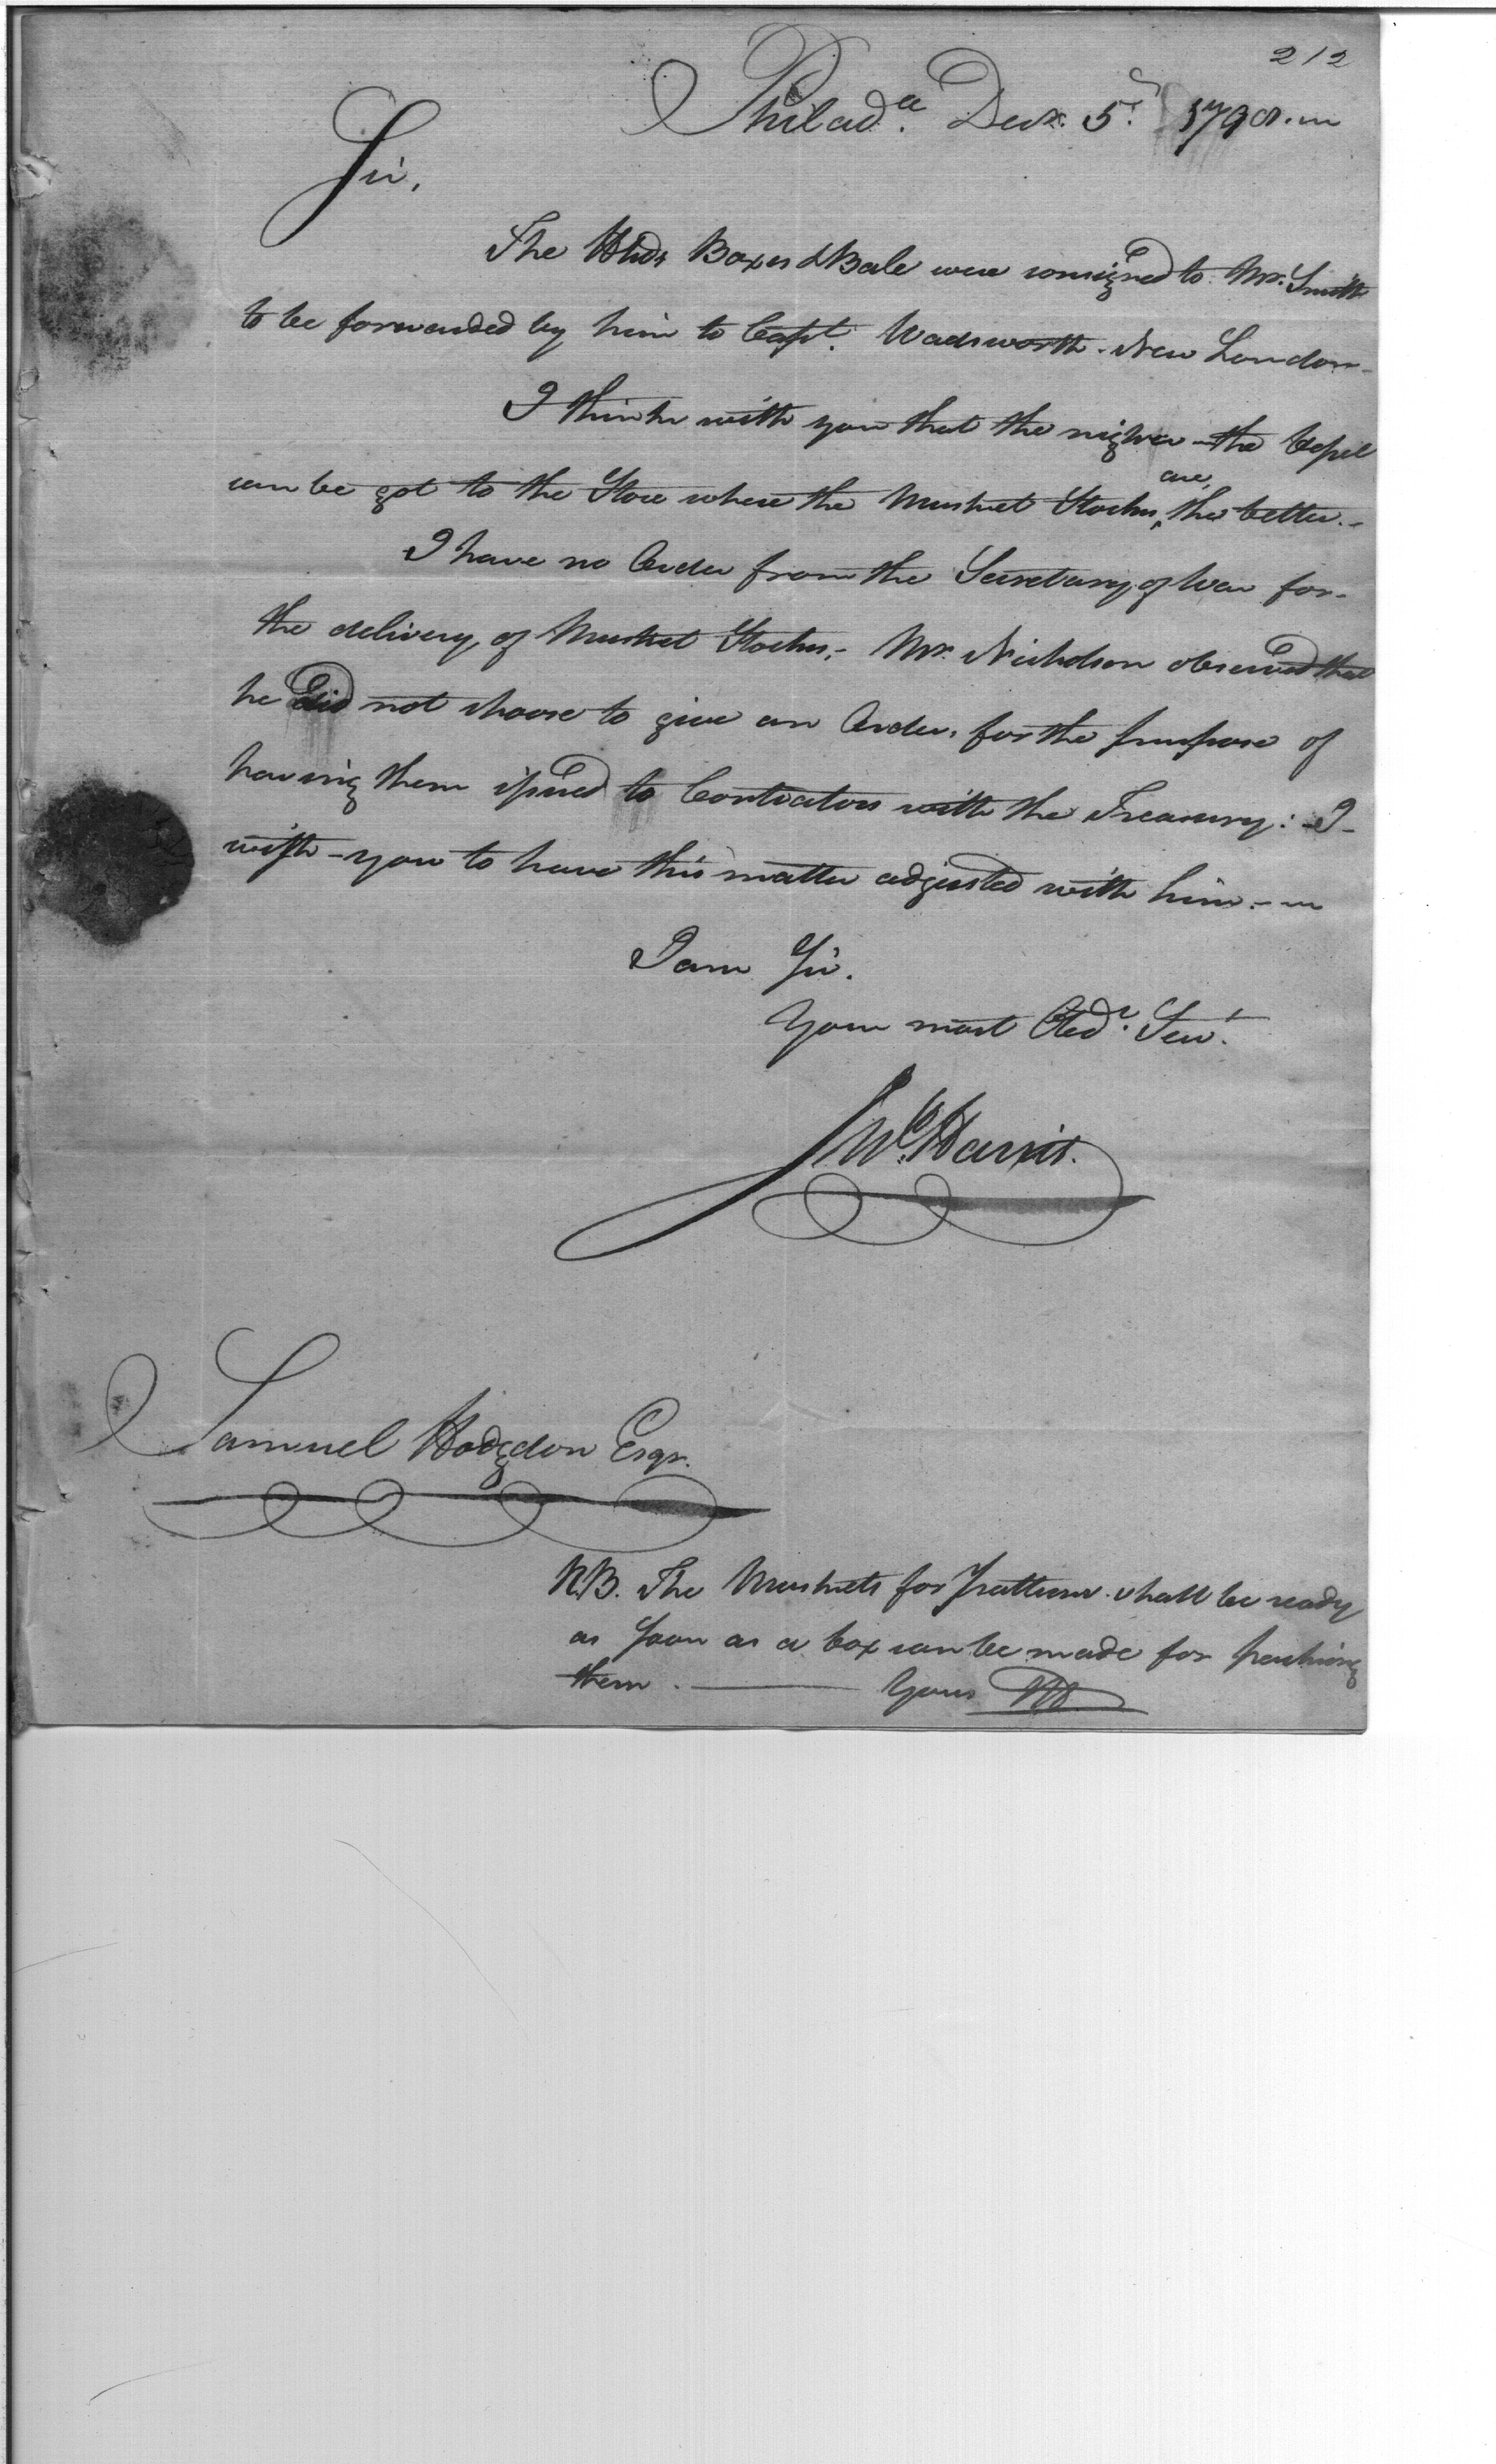 212
Philad.a Decr. 5. 1798.
Sir,
The Hhds Boxes & Bale were consigned to Mr. Smith
to be forwarded by him to Capt. Wadsworth - New London -
I think with you that the nigher the Vessel
can be got to the Store where the Musket Stocks are, the better. -
I have no Order from the Secretary of War for
the delivery of Musket Stocks, - Mr. Nicholson observed that
he did not choose to give an Order, for the purpose of
having them issued to Contractors with the Treasury: - I -
wish - you to have this matter adjusted with him. -
I am Sir.
Your most Obed.t Serv.t
Harris.
Samuel Hodgdon Esqr.
N.B. The Muskets for Patterns shall be ready
as soon as a box can be made for packing
them. Yours